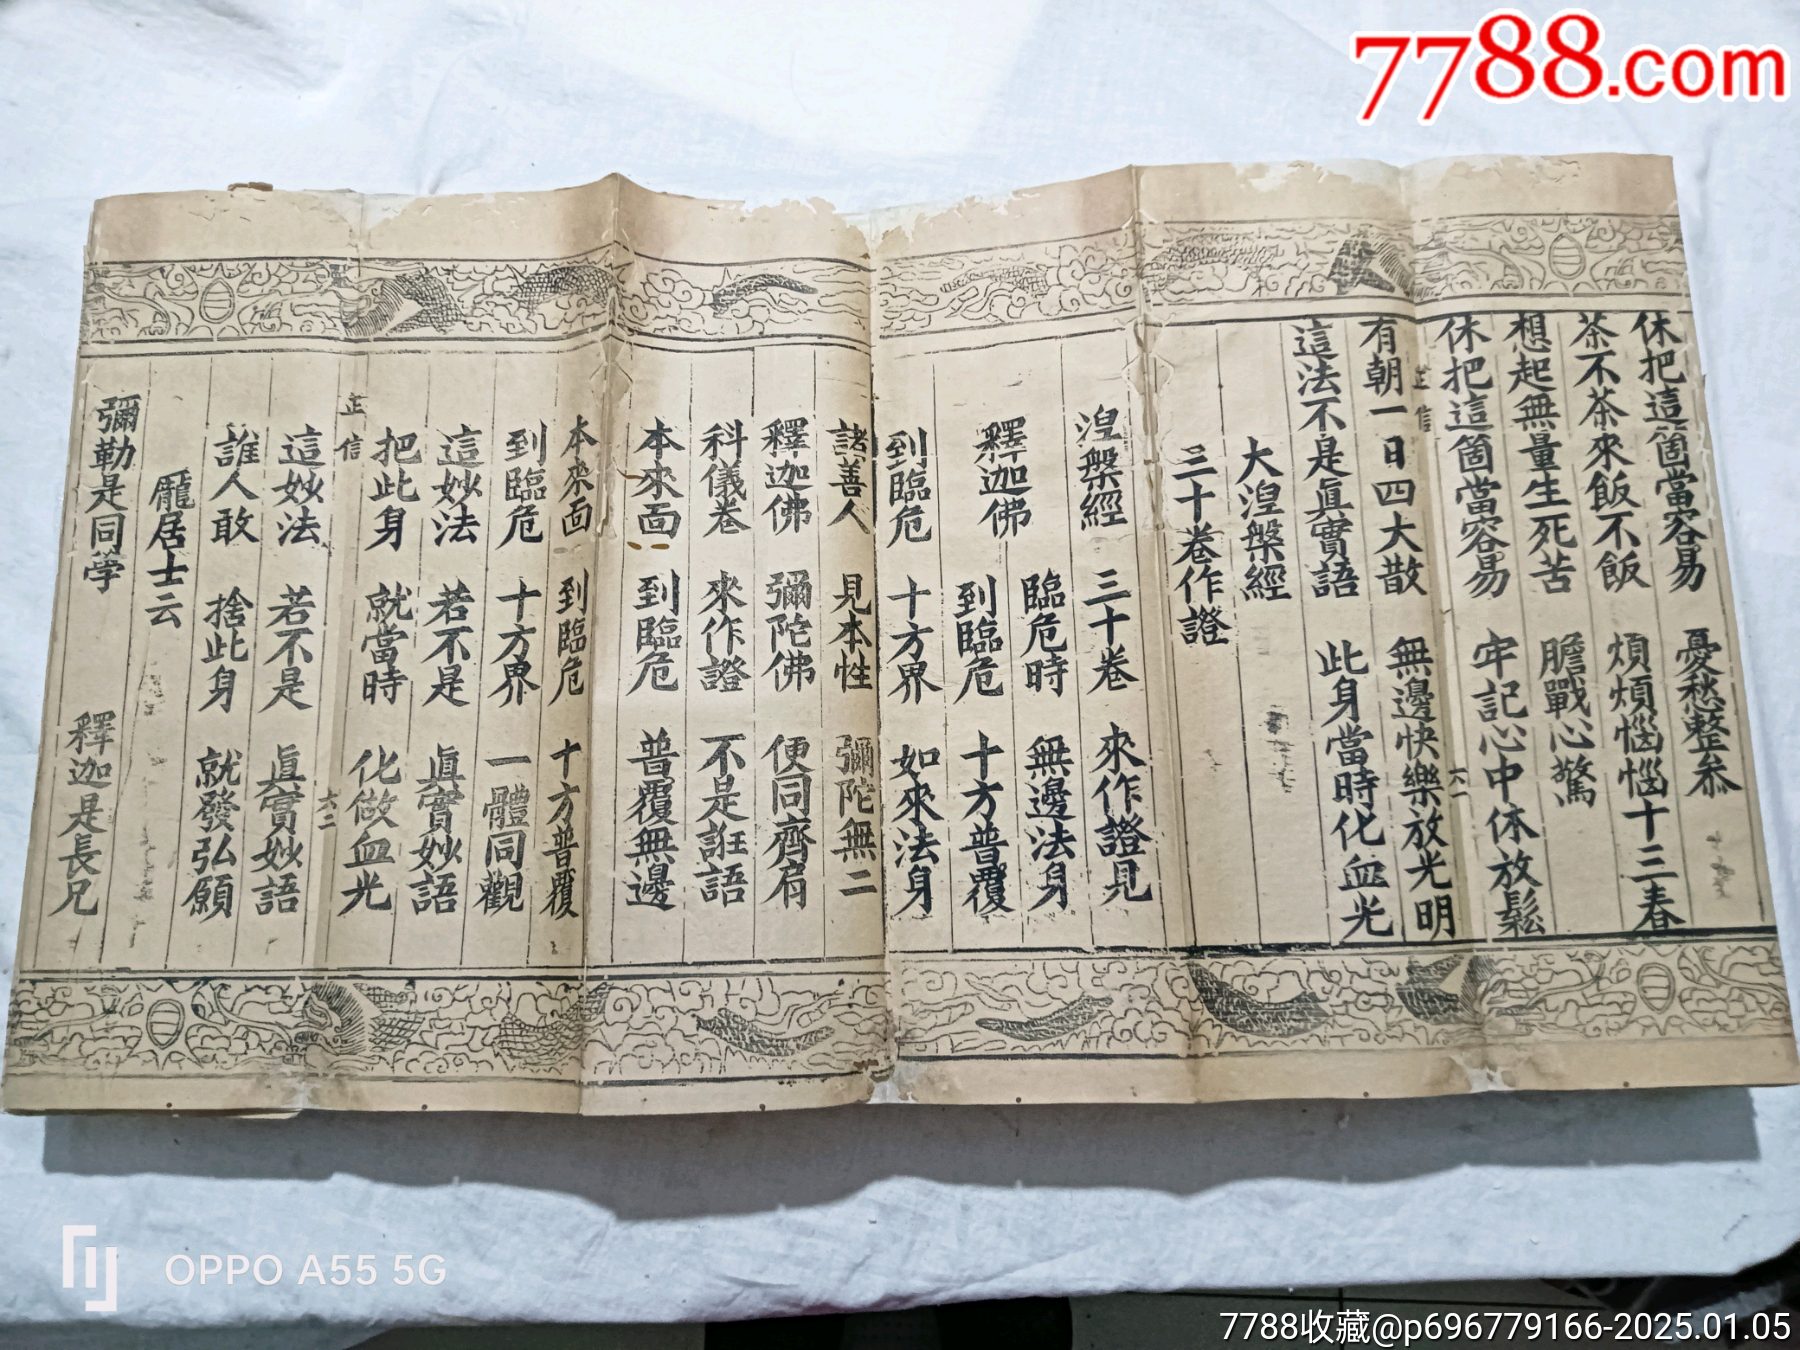 7788.com
休把這箇當容易 憂愁整叅
茶不茶來飯不飯 煩煩惱惱十三春
想起無量生死苦 膽戰心驚
休把這箇當容易 牢記心中体放鬆
正信 六一
有朝一日四大散 無邊快樂放光明
這法不是眞實語 此身當時化血光
大湼槃經
三十卷作證
湼槃經 三十卷 來作證見
臨危時 無邊法身
釋迦佛 到臨危 十方普覆
到臨危 十方界 如來法身
諸善人 見本性 彌陀無二
釋迦佛 彌陀佛 便同齊肩
科儀卷 來作證 不是誑語
本來面 到臨危 普覆無邊
本來面 到臨危 十方普覆
到臨危 十方界 一體同觀
這妙法 若不是 眞實妙語
把此身 就當時 化做血光
正信 六二
這妙法 若不是 眞實妙語
誰人敢 捨此身 就發弘願
龐居士云
彌勒是同学 釋迦是長兄
OPPO A55 5G
7788收藏@p696779166-2025.01.05